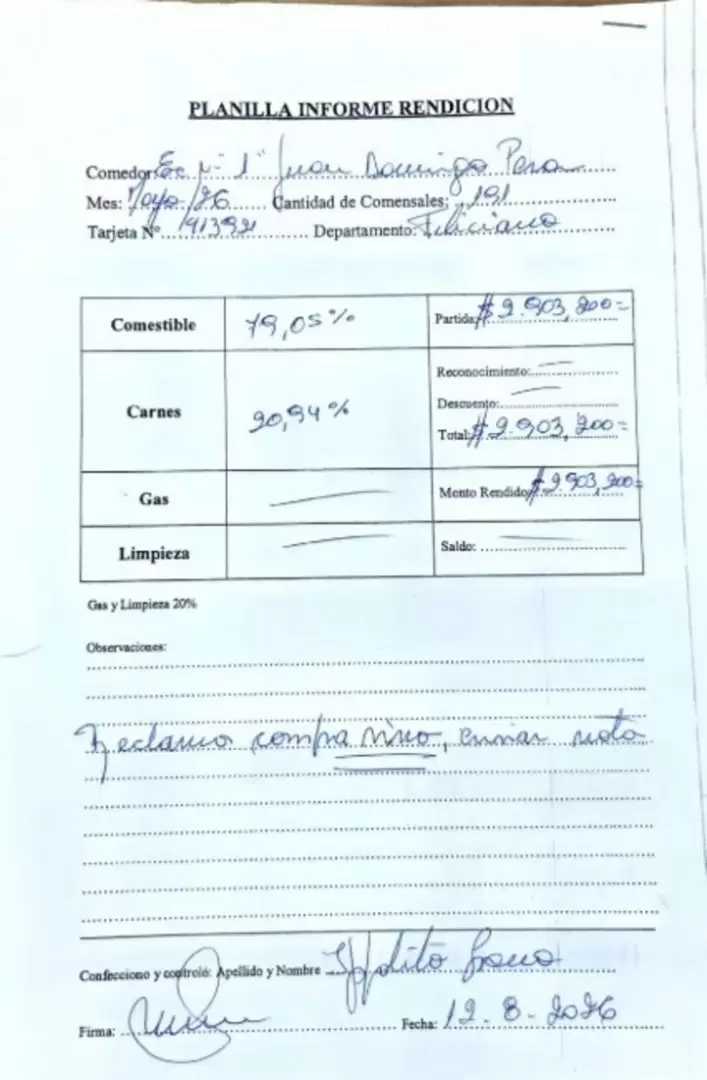 PLANILLA INFORME RENDICION
Comedor: Esc Nº 1 "Juan Domingo Peron
Mes: Mayo/26 Cantidad de Comensales: 191
Tarjeta Nº 1413921 Departamento: Feliciano
Comestible 79,05% Partida: $ 2.903,200=
Reconocimiento: —
Carnes 20,94% Descuento: —
Total: $ 2.903,200=
Gas — Monto Rendido: $ 2.903,200=
Limpieza — Saldo: —
Gas y Limpieza 20%
Observaciones:
Reclamo compra vino, enviar nota
Confecciono y controló: Apellido y Nombre
Firma: Fecha: 12-8-2026